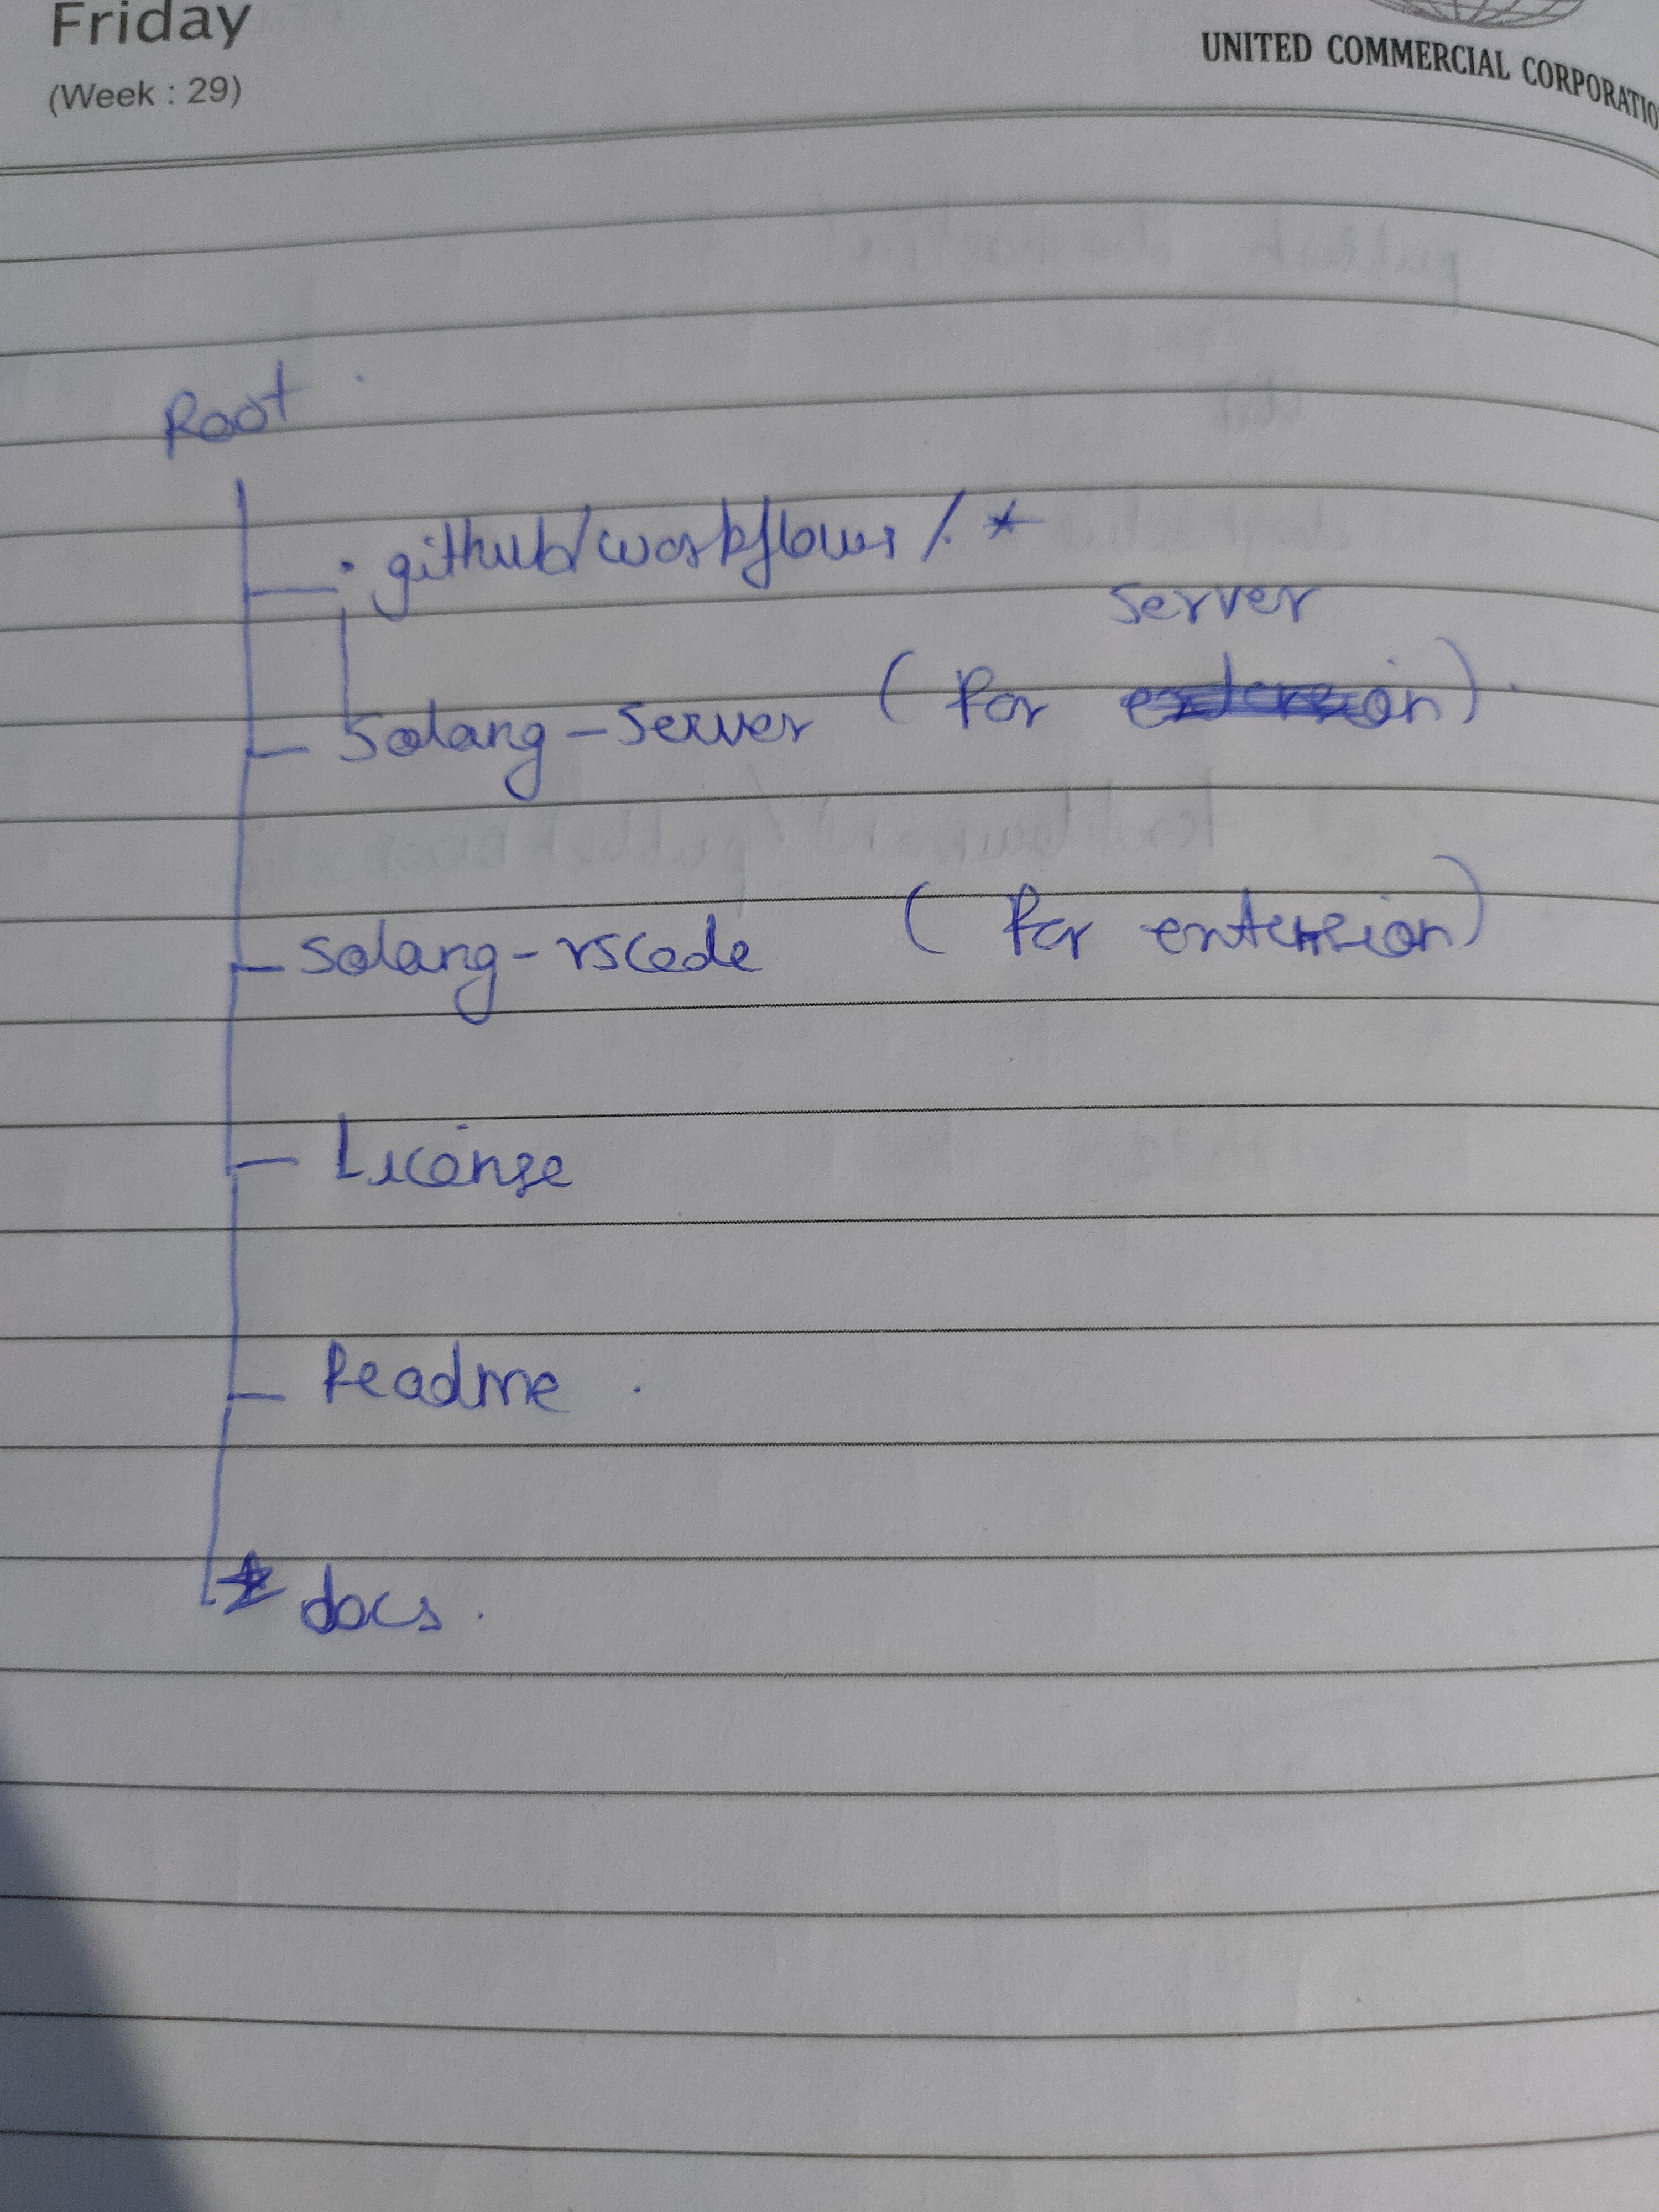 Friday
(Week : 29)
UNITED COMMERCIAL CORPORATIO
Root
.github/workflows/.*
server
solang-server (for extension).
solang-vscode (for extension)
License
Readme .
docs.